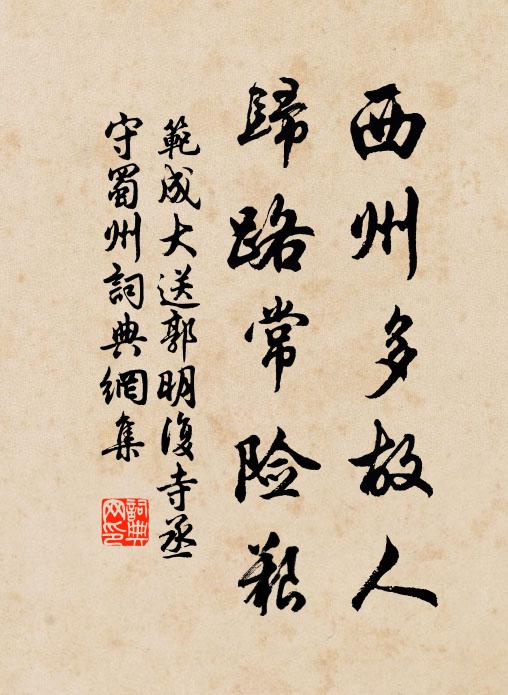 西州多故人
歸路常险艱
範成大送郭明復寺丞
守蜀州詞典網集
詞典
网印